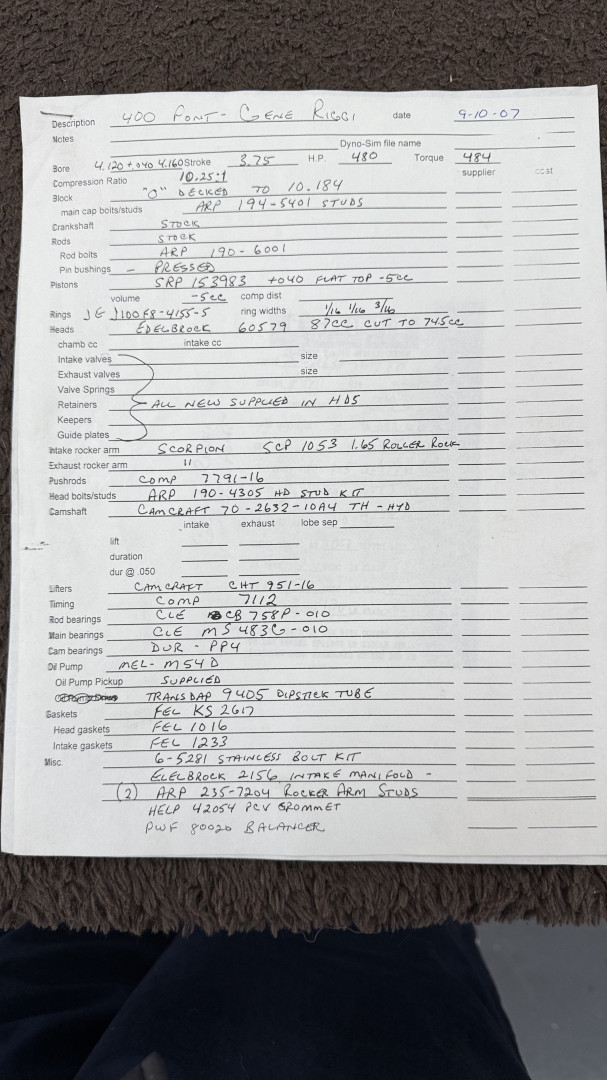 Description 400 PONT - GENE RIGGI date 9-10-07
Notes
Dyno-Sim file name
Bore 4.120 +040 4.160 Stroke 3.75 H.P. 480 Torque 484
Compression Ratio 10.25:1 supplier cost
Block "O" DECKED TO 10.184
main cap bolts/studs ARP 194-5401 STUDS
Crankshaft STOCK
Rods STOCK
Rod bolts ARP 190-6001
Pin bushings - PRESSED
Pistons SRP 153983 +040 FLAT TOP -5cc
volume -5cc comp dist
Rings JE J100F8-4155-5 ring widths 1/16 1/16 3/16
Heads EDELBROCK 60579 87cc CUT TO 74.5cc
chamb cc intake cc
Intake valves size
Exhaust valves size
Valve Springs
Retainers ALL NEW SUPPLIED IN HDS
Keepers
Guide plates
Intake rocker arm SCORPION SCP 1053 1.65 ROLLER ROCK
Exhaust rocker arm "
Pushrods COMP 7791-16
Head bolts/studs ARP 190-4305 HD STUD KIT
Camshaft CAMCRAFT 70-2632-10A4 TH - HYD
intake exhaust lobe sep
lift
duration
dur @ .050
Lifters CAMCRAFT CHT 951-16
Timing COMP 7112
Rod bearings CLE CB 758P-010
Main bearings CLE MS 483G-010
Cam bearings DUR - PP4
Oil Pump MEL- M54D
Oil Pump Pickup SUPPLIED
TRANSDAP 9405 DIPSTICK TUBE
Gaskets FEL KS 2617
Head gaskets FEL 1016
Intake gaskets FEL 1233
Misc. 6-5281 STAINLESS BOLT KIT
ELELBROCK 2156 INTAKE MANIFOLD -
(2) ARP 235-7204 ROCKER ARM STUDS
HELP 42054 PCV GROMMET
PWF 80020 BALANCER